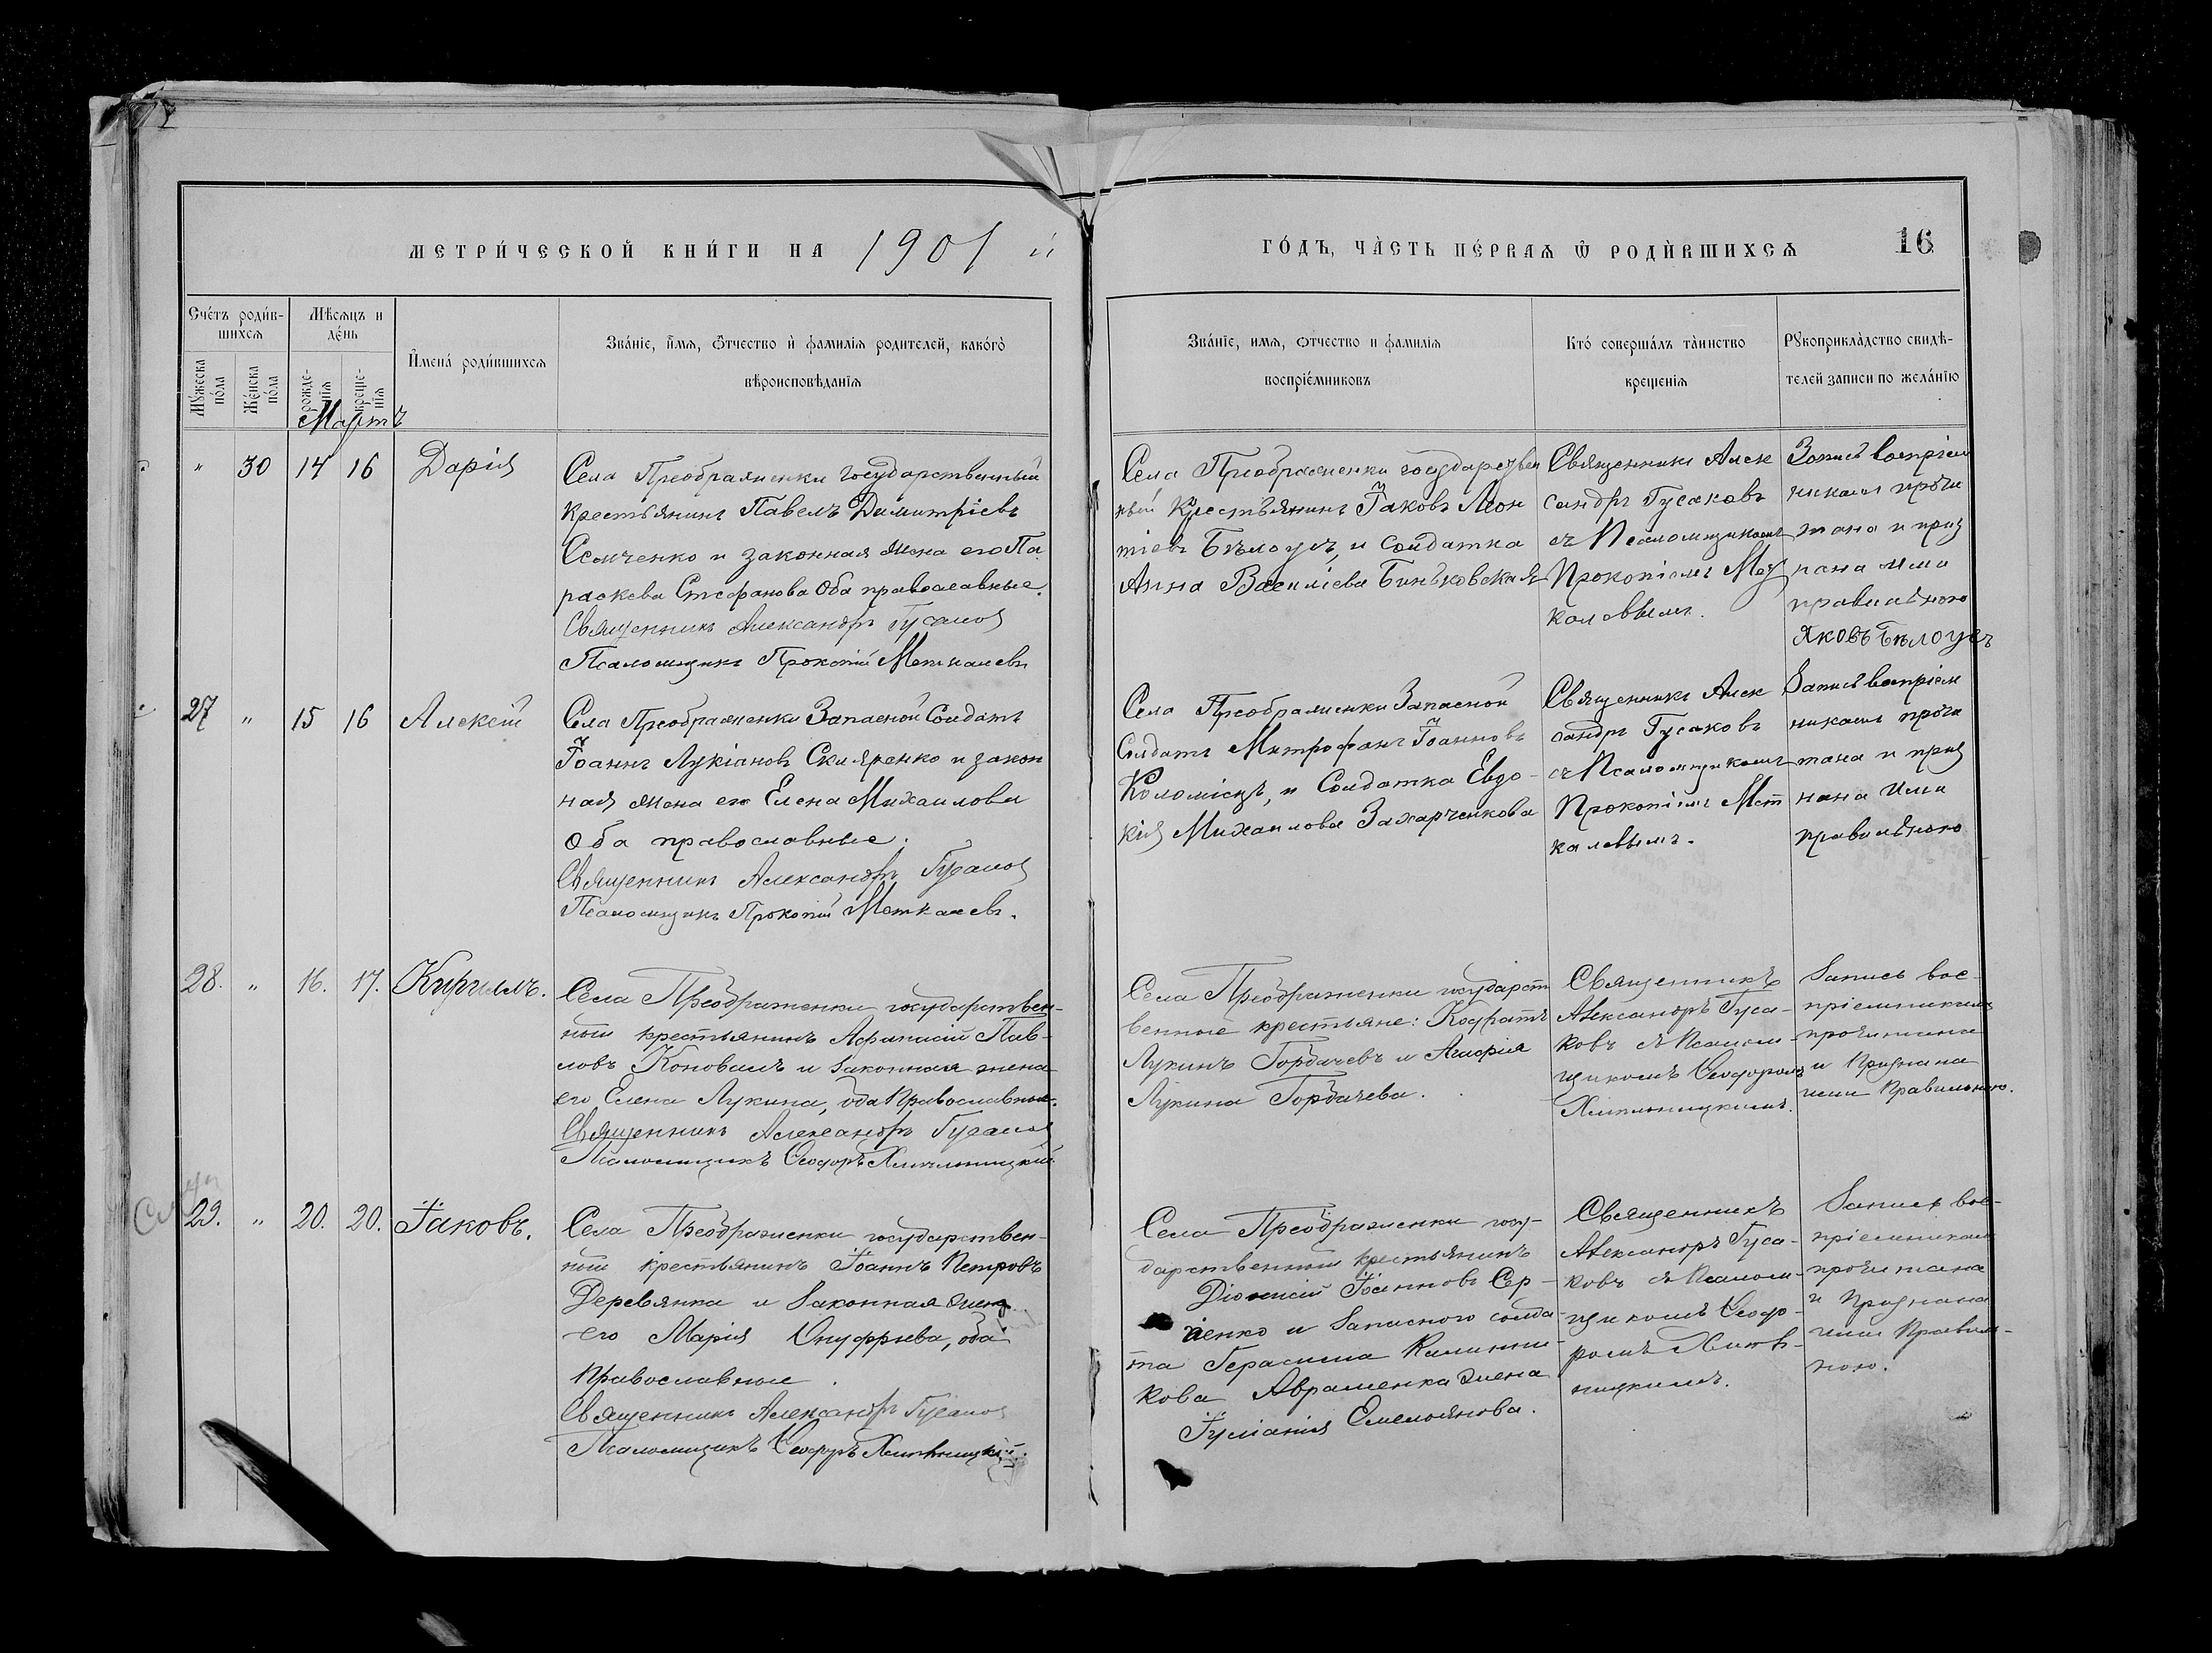 МЕТРИ́ЧЕСКОЙ КНИ́ГИ НА 1901 й
ГО́ДЪ, ЧА̀СТЬ ПЕ́РВАѦ Ѿ РОДИ́ВШИХСѦ 16
Сче́тъ роди́в-
шихсѧ
Мѣсѧцъ и
де́нь
Мꙋ́жеска
по́ла
Же́нска
по́ла
рожде-
нїѧ
креще-
нїѧ
И҆мена́ роди́вшихсѧ
Зва́нїе, и҆́мѧ, ѻ҆́тчество и҆ фамилїѧ родителей, како́гѡ
вѣроисповѣданїѧ
Зва́нїе, имѧ, ѻтчество и фамилїѧ
воспрїе́мниковъ
Кто́ соверша́лъ та́инство
крещенїѧ
Рꙋкоприкла̀дство свидѣ-
телей записи по жела́нїю
Мартъ
" 30 14 16 Дарія
Села Преображенки государственный
крестьянинъ Павелъ Димитріевъ
Семченко и законная жена его Па
раскева Стефанова Оба православные.
Священникъ Александръ Гусаков
Псаломщикъ Прокопій Меткалевъ
Села Преображенки государствен
ный крестьянинъ Іаковъ Леон
тіевъ Бѣлоусъ, и Солдатка
Анна Василіева Биньковская
Священникъ Алек
сандръ Гусаковъ
съ Псаломщикомъ
Прокопіемъ Мет
калевымъ.
Запись воспріем
никамъ прочи
тана и приз
нана ими
правильною
Яковъ Бѣлоусъ
27 " 15 16 Алексій
Села Преображенки Запасной Солдатъ
Іоаннъ Лукіановъ Скляренко и закон
ная жена его Елена Михаилова
Оба православные.
Священникъ Александръ Гусаков
Псаломщикъ Прокопій Меткалевъ.
Села Преображенки Запасной
Солдатъ Митрофанъ Іоанновъ
Коломіецъ, и Солдатка Евдо-
кія Михаилова Захарченкова
Священникъ Алек
сандръ Гусаковъ
съ Псаломщикомъ
Прокопіемъ Мет
калевымъ.
Запись воспріем
никамъ прочи
тана и приз
нана ими
правильною
28. " 16. 17. Кириллъ.
Села Преображенки государствен-
ный крестьянинъ Афанасій Пав-
ловъ Коновалъ и законная жена
его Елена Лукина, оба Православные.
Священникъ Александръ Гусаков
Псаломщикъ Ѳеодоръ Хмельницкій
Села Преображенки государст
венные крестьяне: Кодратъ
Лукинъ Гордачевъ и Агафія
Лукина Гордачева.
Священникъ
Александръ Гуса-
ковъ съ Псалом-
щикомъ Ѳеодоромъ
Хмельницкимъ.
Запись вос-
пріемникамъ
прочитана
и Признана
ими Правильною.
29. " 20. 20. Іаковъ.
Села Преображенки государствен-
ный крестьянинъ Іоаннъ Петровъ
Деревянка и Законная жена
его Марія Онуфріева, оба
Православные.
Священникъ Александръ Гусаков
Псаломщикъ Ѳеодоръ Хмельницкій.
Села Преображенки госу-
дарственный крестьянинъ
Діонисій Іоанновъ Сер-
гіенко и Запасного солда-
та Герасима Калинни-
кова Авраменка жена
Іуліанія Емельянова.
Священникъ
Александръ Гуса-
ковъ съ Псалом-
щикомъ Ѳеодо-
ромъ Хмель-
ницкимъ.
Запись вос-
пріемникамъ
прочитана
и Признана
ими Правиль-
ною.